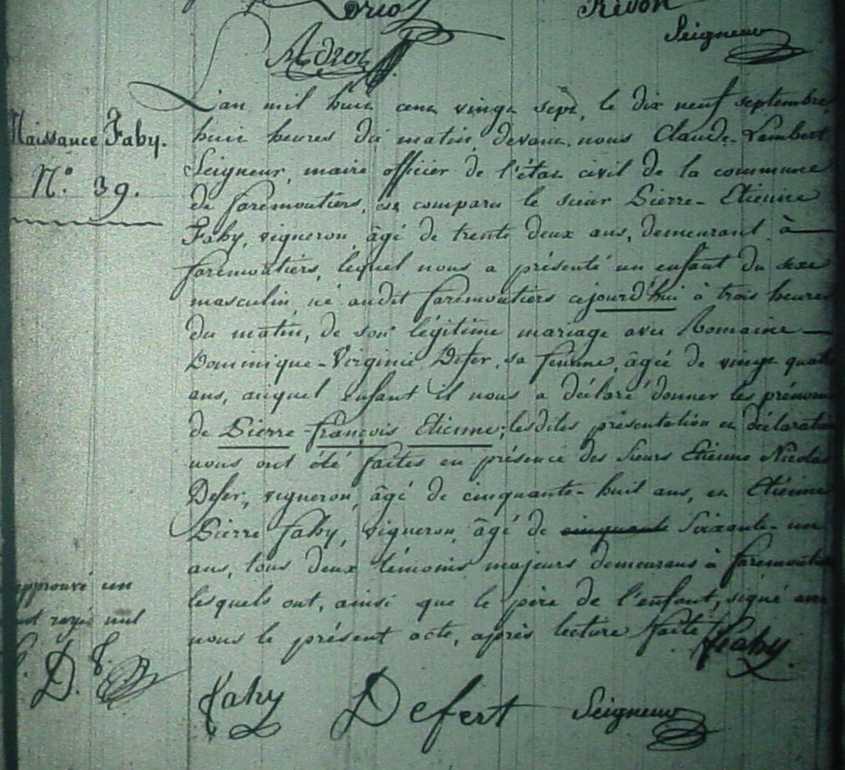 Rivon
Seigneur
Naissance Faby.
N.º 39.
L'an mil huit cent vingt sept, le dix neuf septembre,
huit heures du matin, devant nous Claude-Lambert
Seigneur, maire officier de l'état civil de la commune
de faremoutiers, est comparu le sieur Pierre-Etienne
Faby, vigneron, âgé de trente deux ans, demeurant à
faremoutiers, lequel nous a présenté un enfant du sexe
masculin né audit faremoutiers cejourd'hui à trois heures
du matin, de son légitime mariage avec Romaine
Dominique-Virginie Defer, sa femme, âgée de vingt quatre
ans, auquel enfant il nous a déclaré donner les prénoms
de Pierre françois Etienne; lesdites présentation et déclaration
nous ont été faites en présence des sieurs Etienne Nicolas
Defer, vigneron, âgé de cinquante-huit ans, et Etienne
Pierre Faby, vigneron, âgé de cinquante Soixante-un
ans, tous deux témoins majeurs demeurans à faremoutiers
lesquels ont, ainsi que le père de l'enfant, signé avec
nous le présent acte, après lecture faite. Faby.
approuvé un
mot rayé nul
D. F.
Faby Defert Seigneur